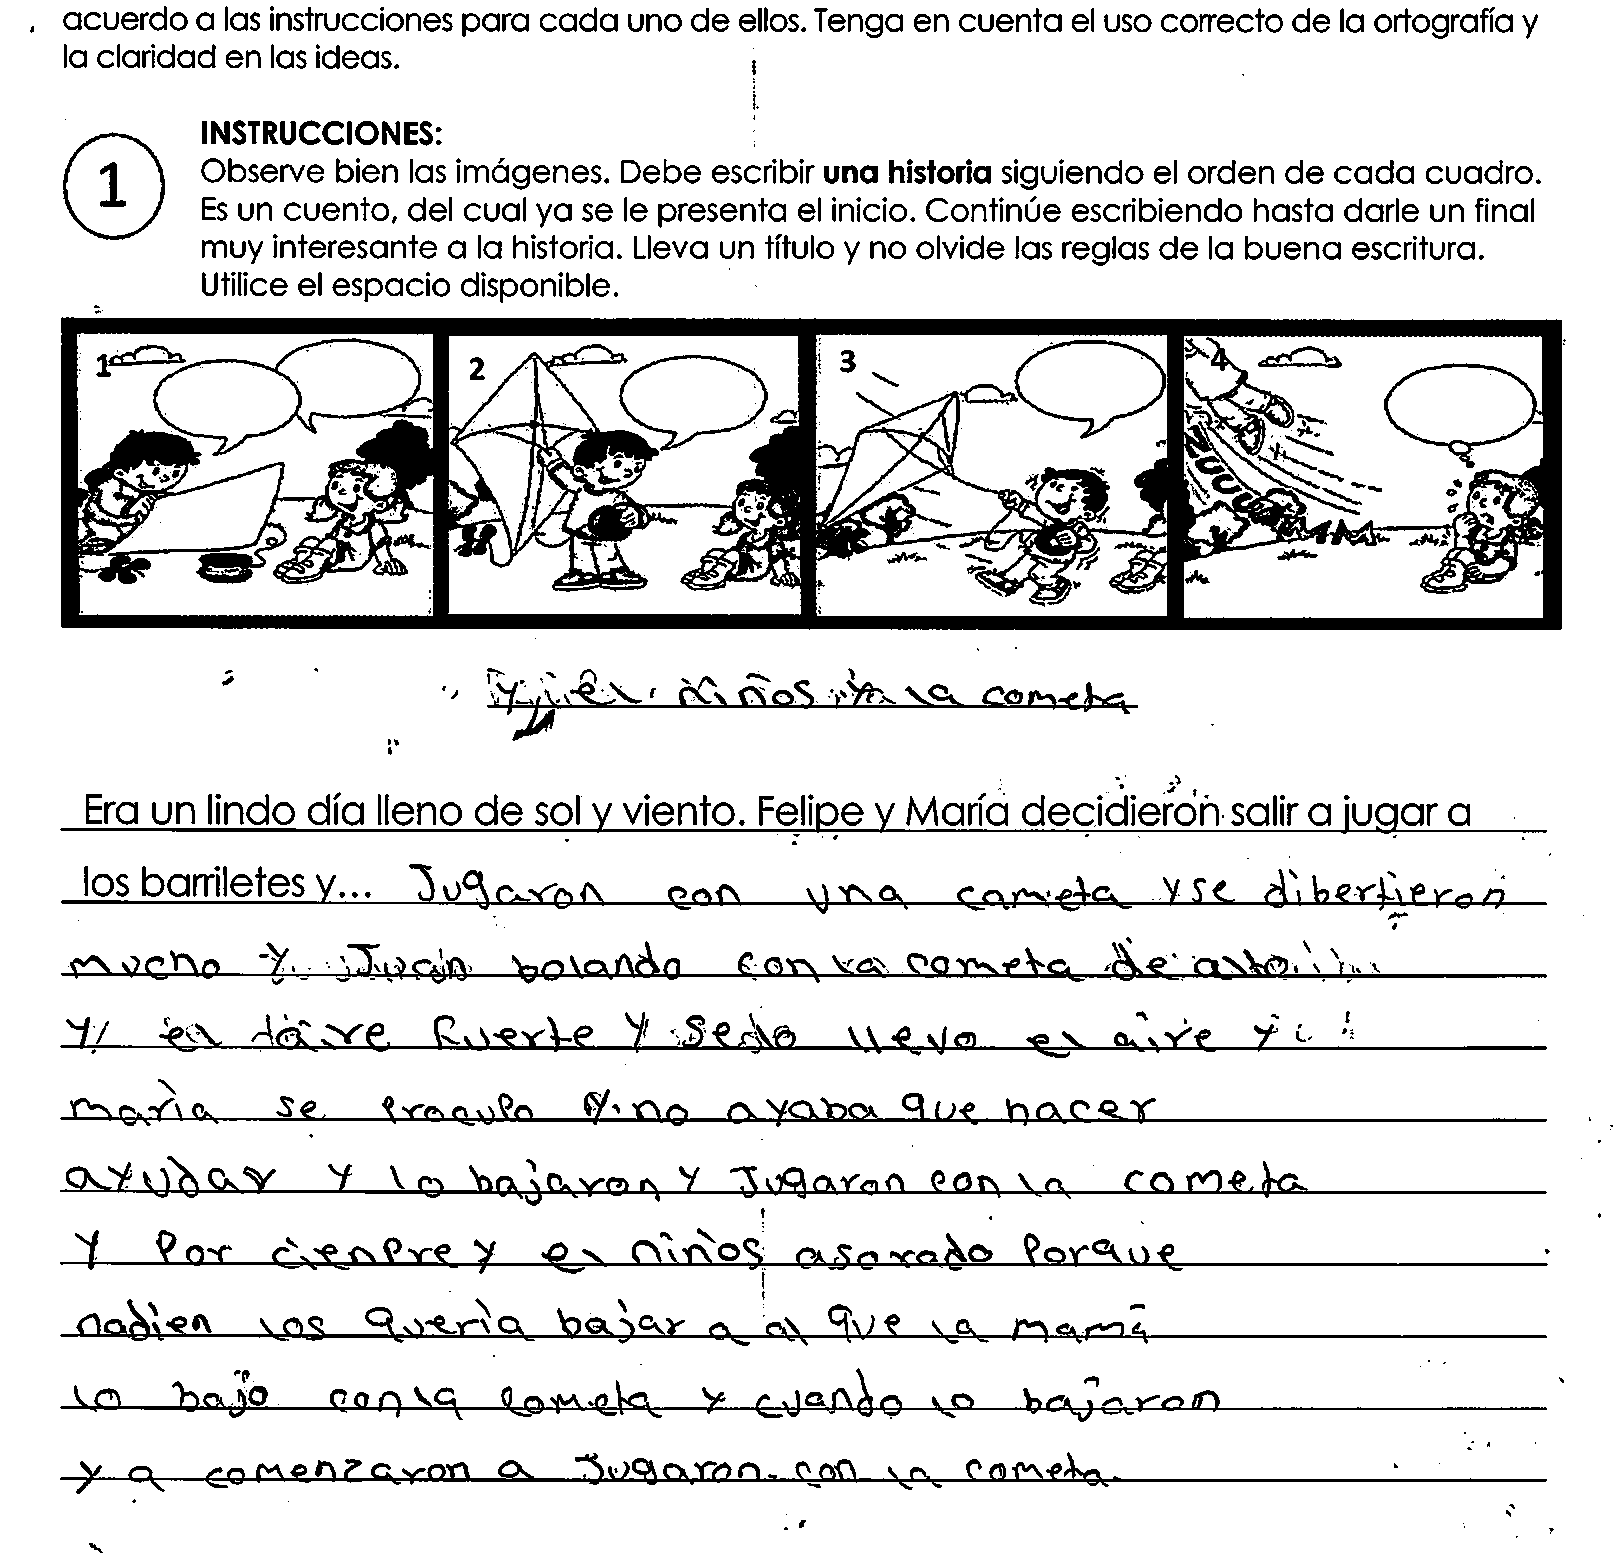 acuerdo a las instrucciones para cada uno de ellos. Tenga en cuenta el uso correcto de la ortografía y
la claridad en las ideas.
1
INSTRUCCIONES:
Observe bien las imágenes. Debe escribir una historia siguiendo el orden de cada cuadro.
Es un cuento, del cual ya se le presenta el inicio. Continúe escribiendo hasta darle un final
muy interesante a la historia. Lleva un título y no olvide las reglas de la buena escritura.
Utilice el espacio disponible.
1 2 3 4
el niños la cometa
Era un lindo día lleno de sol y viento. Felipe y María decidieron salir a jugar a
los barriletes y... Jugaron con una cometa y se dibertieron
mucho y Juan bolando con la cometa de alto
y el aire fuerte y se lo llevo el aire y
maría se y no ayaba que hacer
ayudar y lo bajaron y Jugaron con la cometa
y por cienpre y el niños asorado porque
nadien los quería bajar a al que la mamá
lo bajo con la cometa y cuando lo bajaron
y a comenzaron a Jugaron con la cometa.